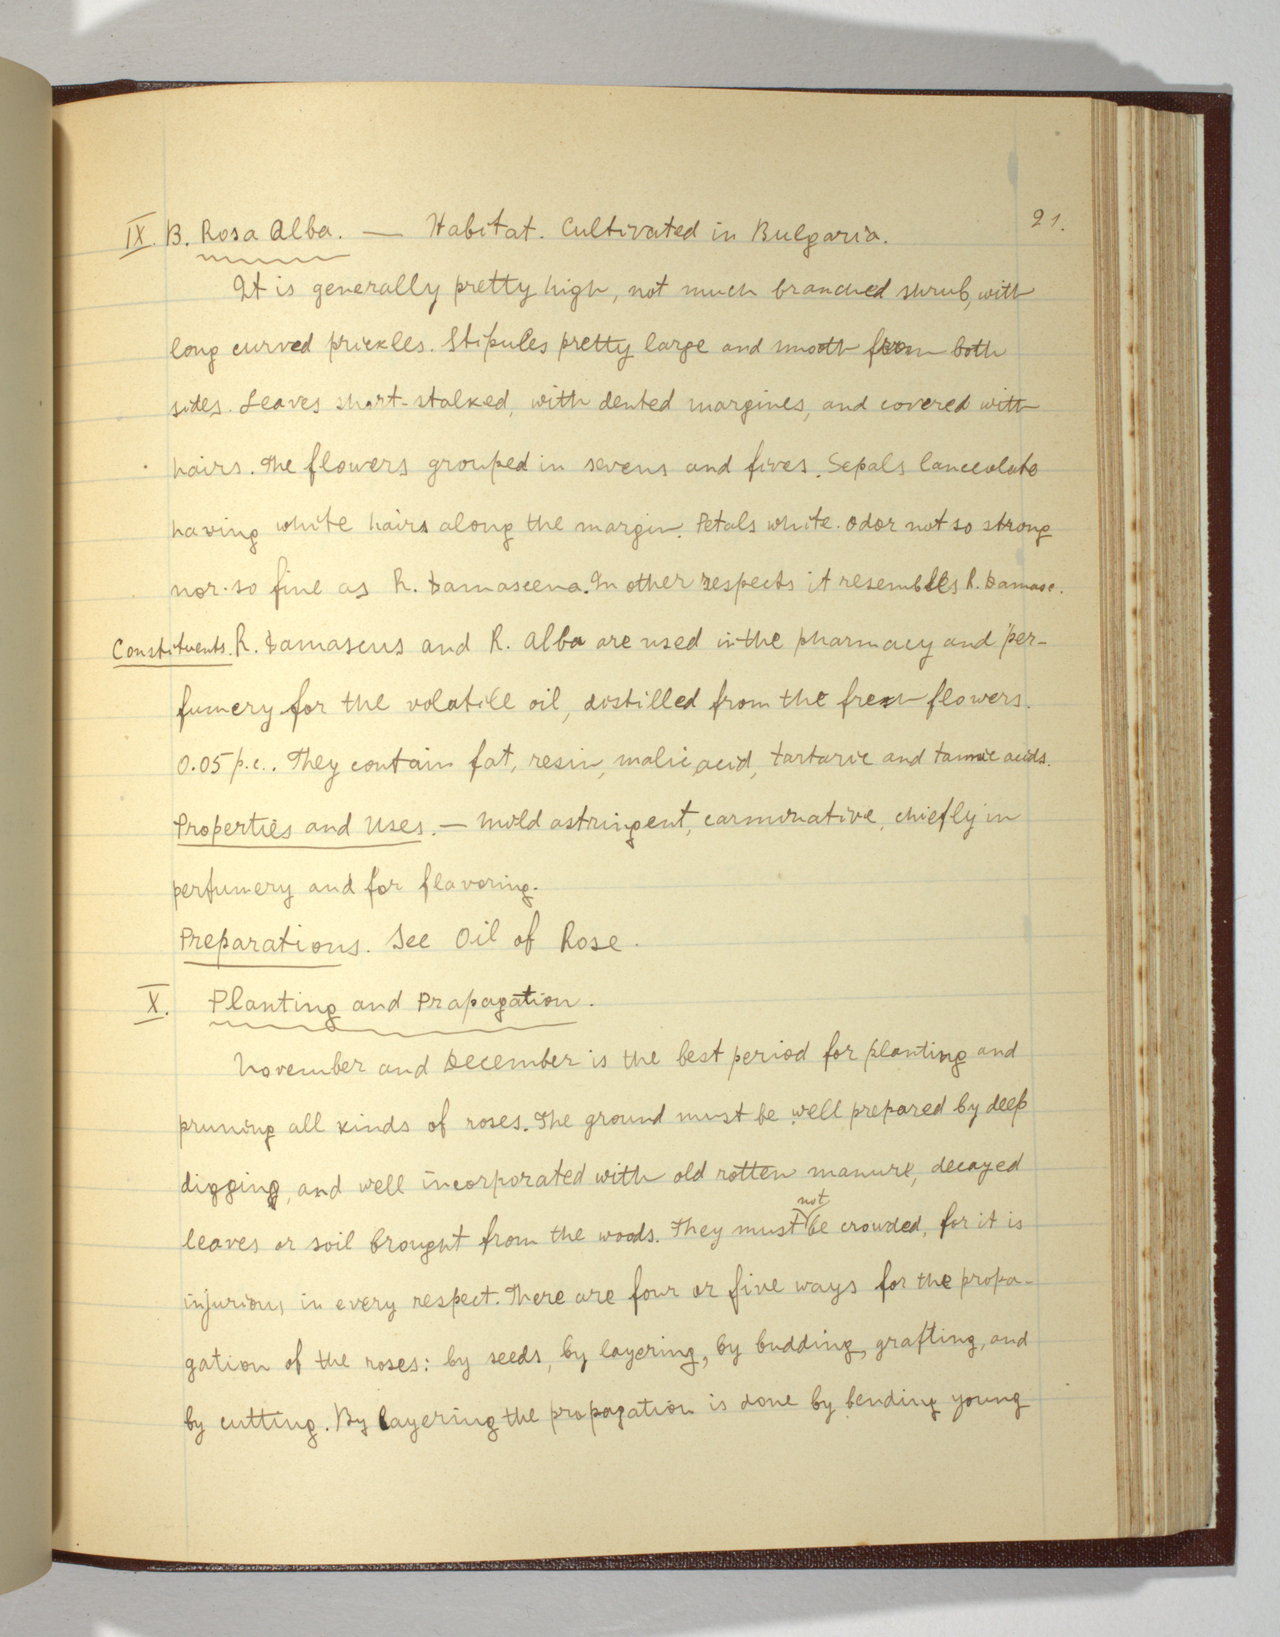 21.
IX. B. Rosa Alba. — Habitat. Cultivated in Bulgaria.
It is generally pretty high, not much branched shrub, with
long curved prickles. Stipules pretty large and smooth from both
sides. Leaves short-stalked, with dented margines, and covered with
hairs. The flowers grouped in sevens and fives. Sepals lanceolate
having white hairs along the margin. Petals white. Odor not so strong
nor so fine as R. Damascena. In other respects it resembles R. Damasc.
Constituents. R. Damascus and R. Alba are used in the pharmacy and per-
fumery for the volatile oil, distilled from the fresh flowers.
0.05 p.c.. They contain fat, resin, malic acid, tartaric and tannic acids.
Properties and Uses. — Mild astringent, carminative, chiefly in
perfumery and for flavoring.
Preparations. See Oil of Rose.
X. Planting and Propagation.
November and December is the best period for planting and
pruning all kinds of roses. The ground must be well prepared by deep
digging, and well incorporated with old rotten manure, decayed
leaves or soil brought from the woods. They must not be crowded, for it is
injurious in every respect. There are four or five ways for the propa-
gation of the roses: by seeds, by layering, by budding, grafting, and
by cutting. By layering the propagation is done by bending young